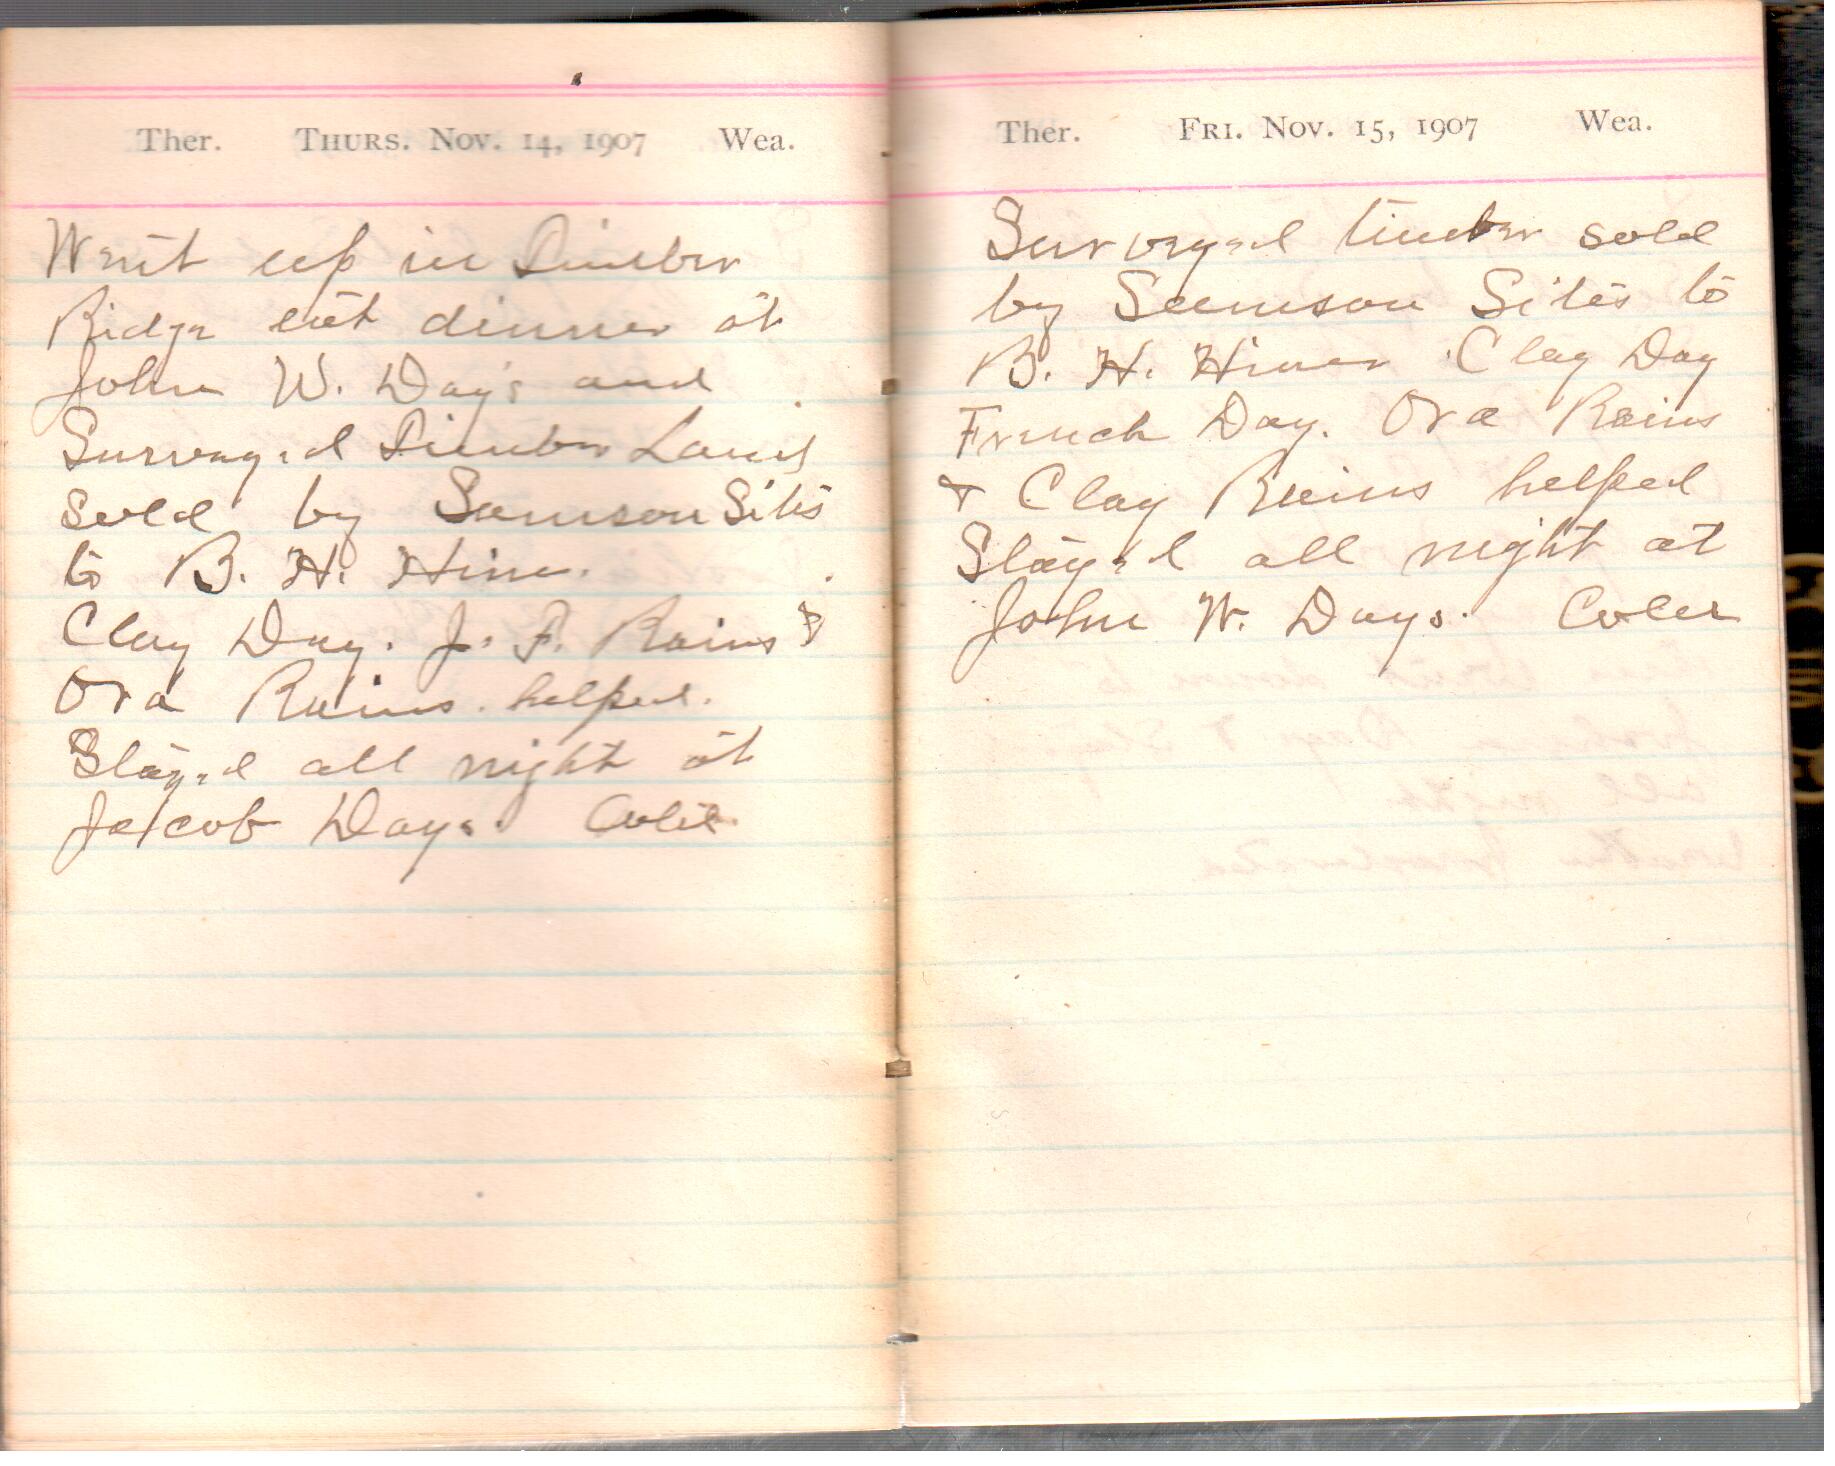 Ther. THURS. NOV. 14, 1907 Wea.
Went up in Timber
Ridge eat dinner at
John W. Day's and
Surveyed Timber Land
sold by Samson Sites
to B. H. Hiner.
Clay Day. J. F. Rains &
Ora Rains. helped.
Stayed all night at
Jacob Days.
Ther. FRI. NOV. 15, 1907 Wea.
Surveyed timber sold
by Samson Sites to
B. H. Hiner Clay Day
French Day. Ora Rains
& Clay Rains helped
Stayed all night at
John W. Days.